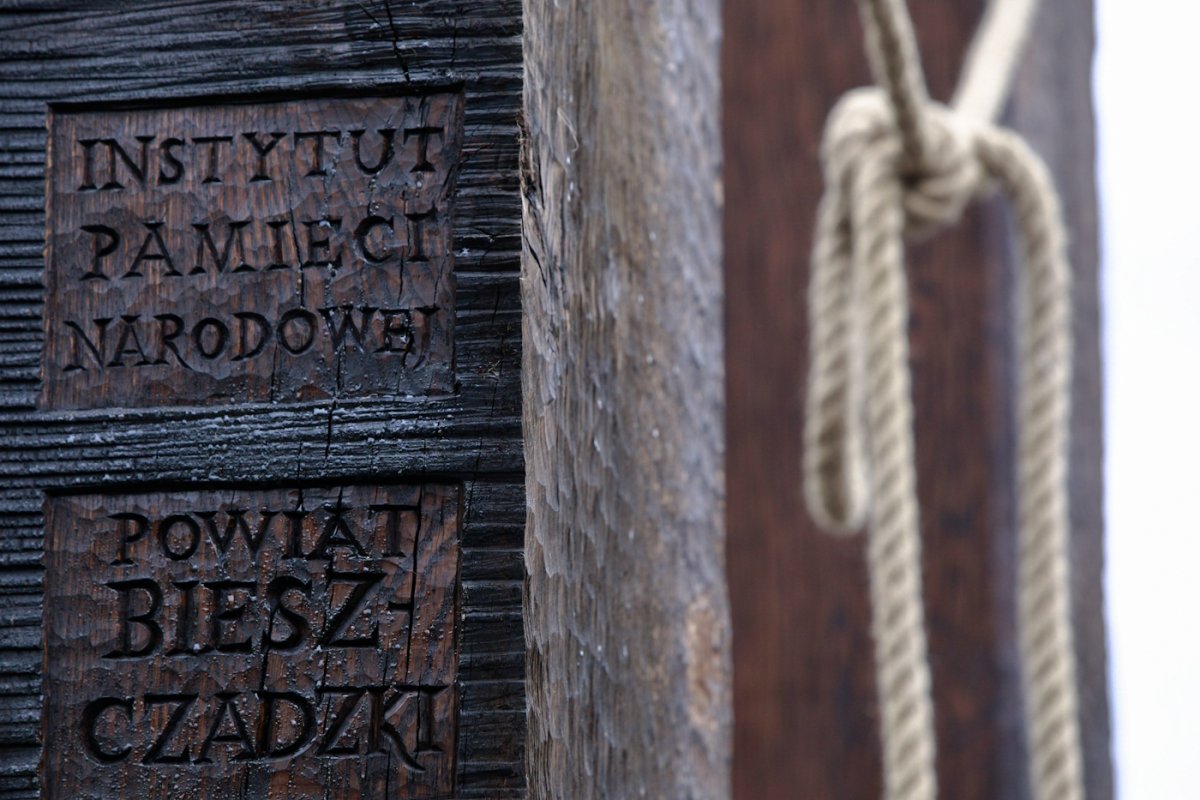 INSTYTUT
PAMIĘCI
NARODOWEJ
POWIAT
BIESZ-
CZADZKI